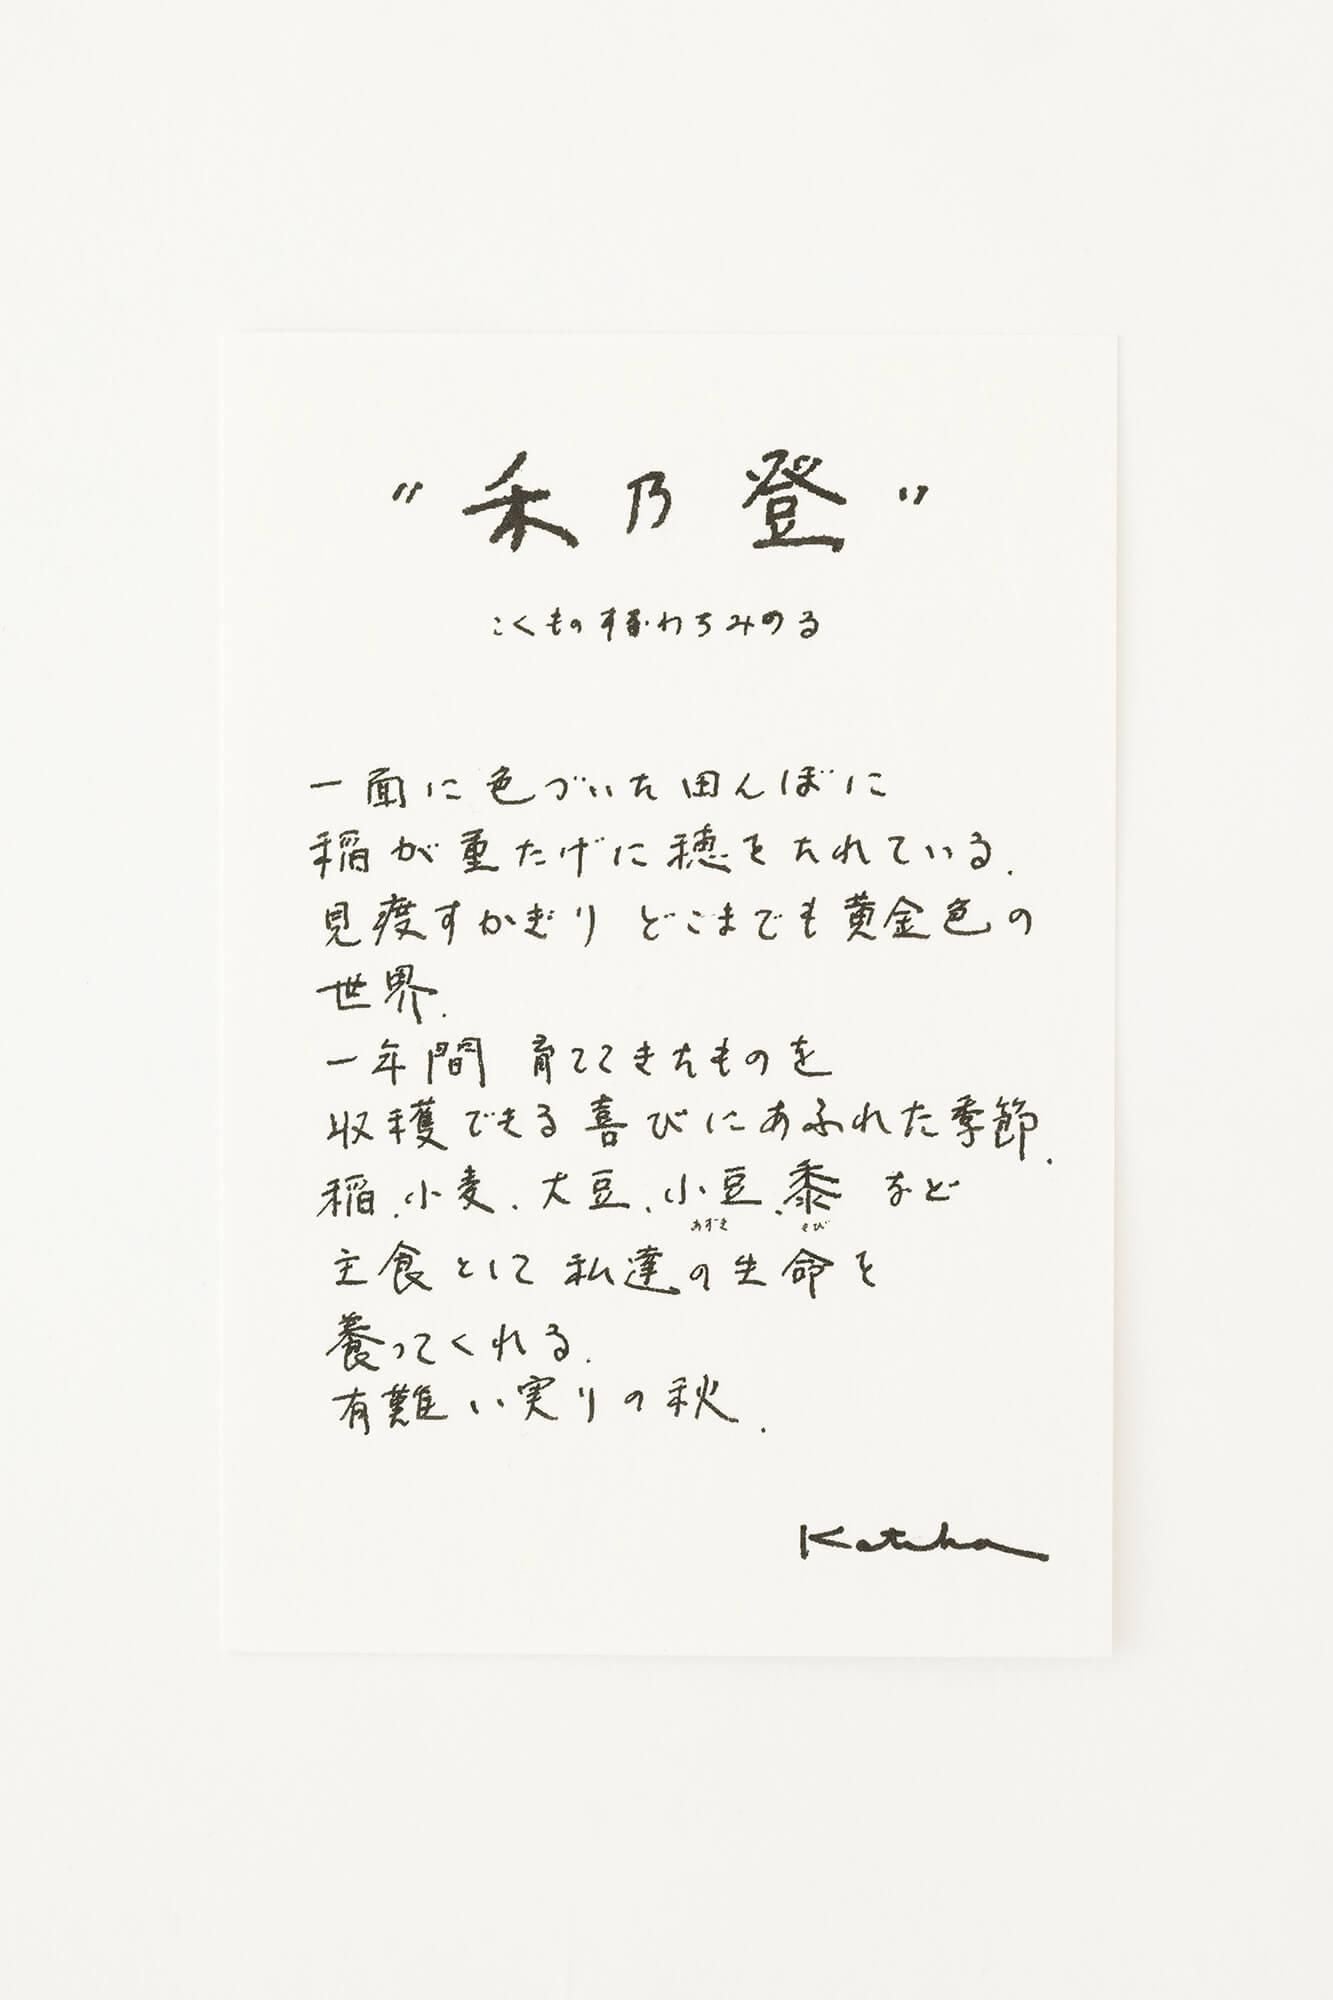 "禾乃登"
こくものすなわちみのる
一面に色づいた田んぼに
稲が重たげに穂をたれている.
見渡すかぎり どこまでも黄金色の
世界.
一年間 育ててきたものを
収穫できる喜びにあふれた季節.
稲.小麦.大豆.小豆.黍 など
あずき きび
主食として私達の生命を
養ってくれる.
有難い実りの秋.